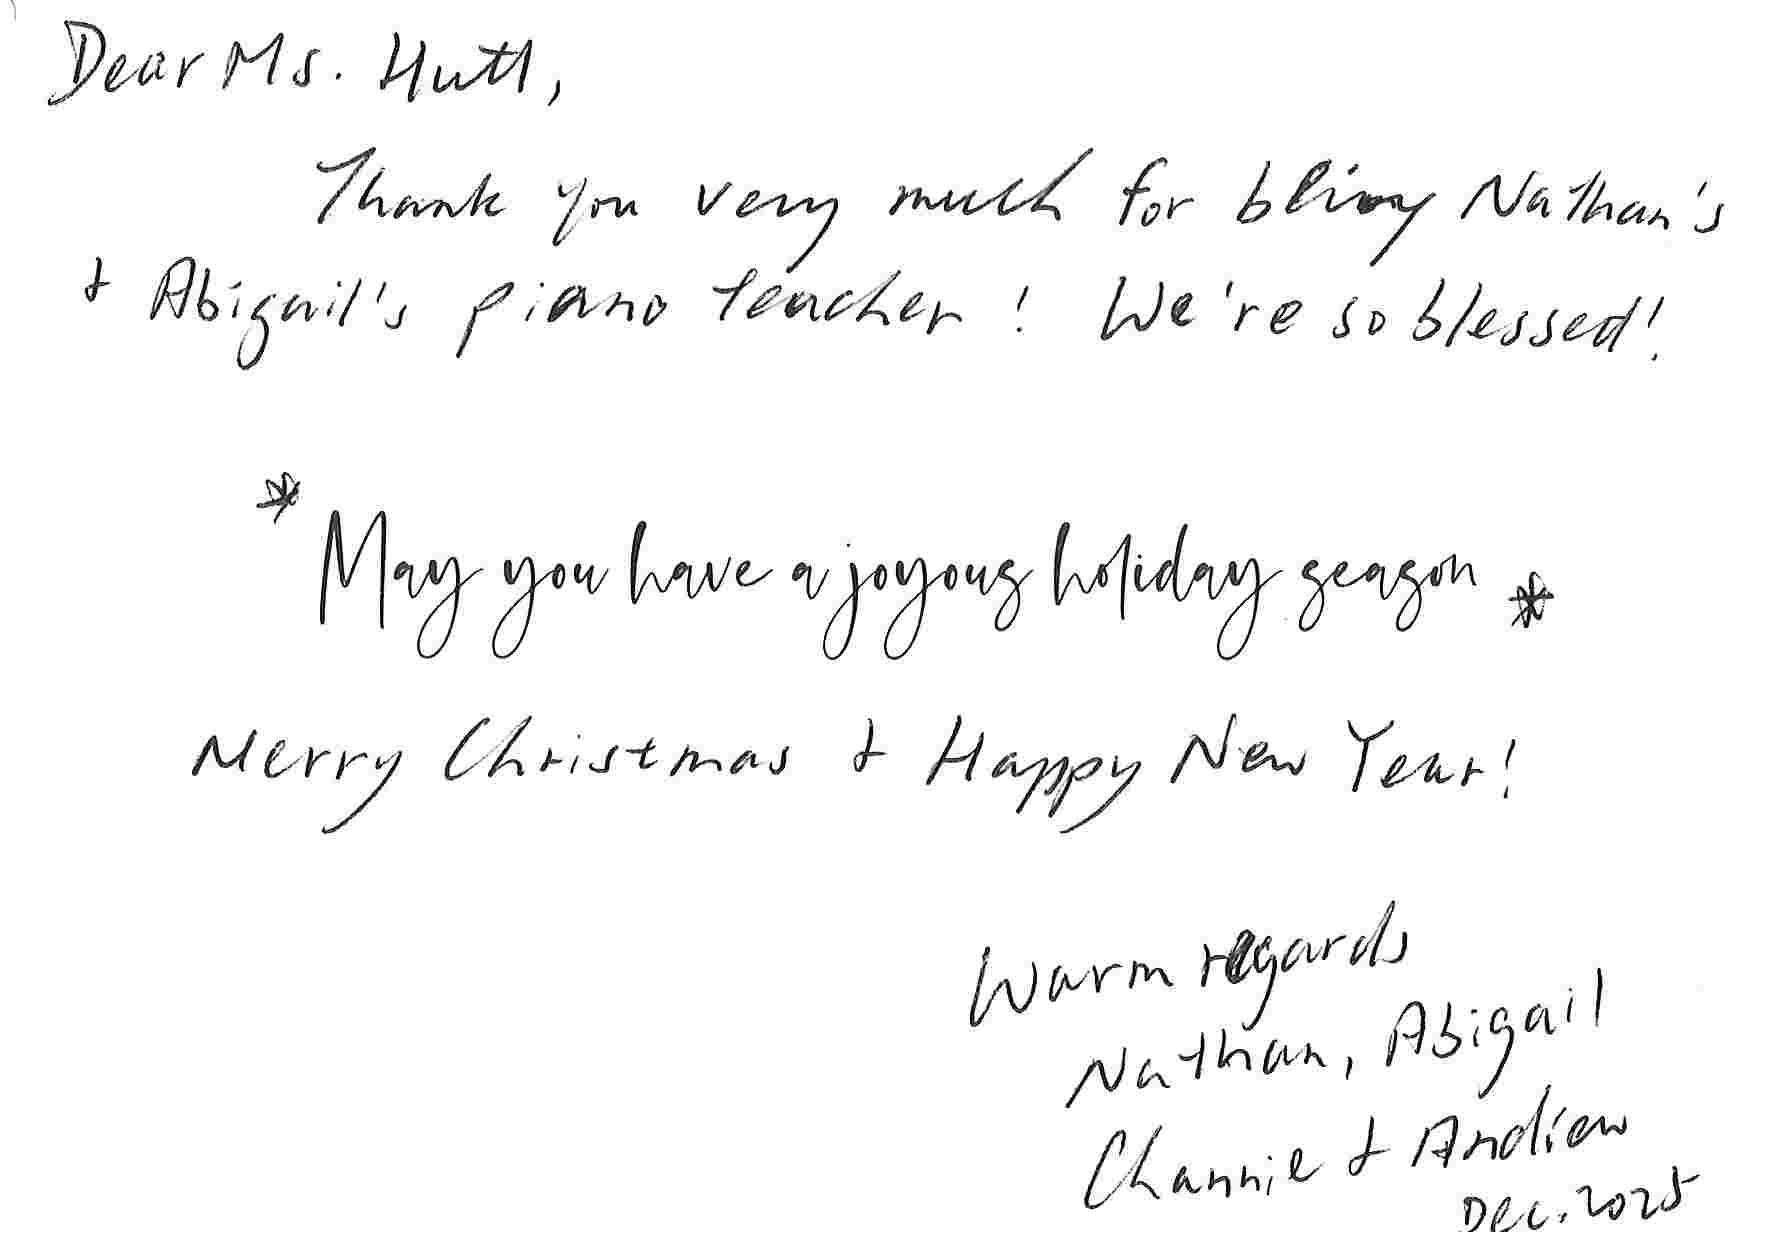 Dear Ms. Hutl,
Thank you very much for being Nathan's
& Abigail's piano teacher! We're so blessed!
* May you have a joyous holiday season *
Merry Christmas & Happy New Year!
Warm regards
Nathan, Abigail
Channie & Andrew
Dec. 2025